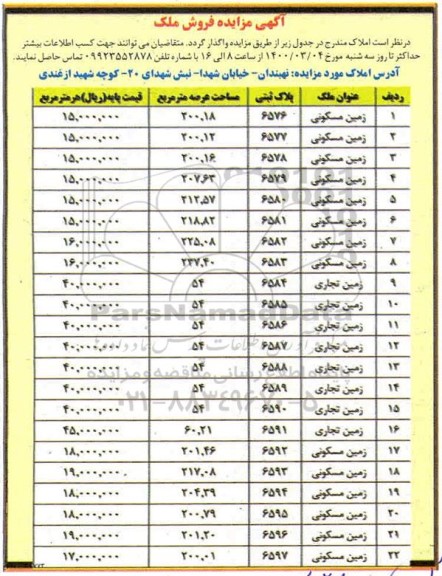 آگهی مزایده فروش ملک
درنظر است املاک مندرج در جدول زیر از طریق مزایده واگذار گردد. متقاضیان می توانند جهت کسب اطلاعات بیشتر
حداکثر تا روز سه شنبه مورخ ۱۴۰۰/۰۳/۰۴ از ساعت ۸ الی ۱۶ با شماره تلفن ۰۹۹۲۳۵۵۲۸۷۸ تماس حاصل نمایند.
آدرس املاک مورد مزایده: نهبندان- خیابان شهدا- نبش شهدای ۲۰- کوچه شهید ازغندی
ردیف عنوان ملک پلاک ثبتی مساحت عرصه مترمربع قیمت پایه(ریال)هرمترمربع
۱ زمین مسکونی ۶۵۷۶ ۲۰۰.۱۸ ۱۵,۰۰۰,۰۰۰
۲ زمین مسکونی ۶۵۷۷ ۲۰۰.۱۲ ۱۵,۰۰۰,۰۰۰
۳ زمین مسکونی ۶۵۷۸ ۲۰۰.۱۶ ۱۵,۰۰۰,۰۰۰
۴ زمین مسکونی ۶۵۷۹ ۲۰۷.۶۳ ۱۵,۰۰۰,۰۰۰
۵ زمین مسکونی ۶۵۸۰ ۲۱۲.۵۷ ۱۵,۰۰۰,۰۰۰
۶ زمین مسکونی ۶۵۸۱ ۲۱۸.۸۲ ۱۵,۰۰۰,۰۰۰
۷ زمین مسکونی ۶۵۸۲ ۲۲۵.۰۸ ۱۶,۰۰۰,۰۰۰
۸ زمین مسکونی ۶۵۸۳ ۲۳۷.۴۰ ۱۶,۰۰۰,۰۰۰
۹ زمین تجاری ۶۵۸۴ ۵۴ ۴۰,۰۰۰,۰۰۰
۱۰ زمین تجاری ۶۵۸۵ ۵۴ ۴۰,۰۰۰,۰۰۰
۱۱ زمین تجاری ۶۵۸۶ ۵۴ ۴۰,۰۰۰,۰۰۰
ParsNamadData
۱۲ زمین تجاری ۶۵۸۷ ۵۴ ۴۰,۰۰۰,۰۰۰
۱۳ زمین تجاری ۶۵۸۸ ۵۴ ۴۰,۰۰۰,۰۰۰
پایگاه اطلاع رسانی مناقصه و مزایده
۱۴ زمین تجاری ۶۵۸۹ ۵۴ ۴۰,۰۰۰,۰۰۰
۰۲۱-۸۸۳۴۹۶۷۰-۵
۱۵ زمین تجاری ۶۵۹۰ ۵۴ ۴۰,۰۰۰,۰۰۰
۱۶ زمین تجاری ۶۵۹۱ ۶۰.۲۱ ۴۵,۰۰۰,۰۰۰
۱۷ زمین مسکونی ۶۵۹۲ ۲۰۱.۴۶ ۱۸,۰۰۰,۰۰۰
۱۸ زمین مسکونی ۶۵۹۳ ۲۱۷.۰۸ ۱۹,۰۰۰,۰۰۰
۱۹ زمین مسکونی ۶۵۹۴ ۲۰۴.۳۹ ۱۸,۰۰۰,۰۰۰
۲۰ زمین مسکونی ۶۵۹۵ ۲۰۰.۷۹ ۱۸,۰۰۰,۰۰۰
۲۱ زمین مسکونی ۶۵۹۶ ۲۰۱.۲۰ ۱۹,۰۰۰,۰۰۰
۲۲ زمین مسکونی ۶۵۹۷ ۲۰۰.۰۱ ۱۷,۰۰۰,۰۰۰